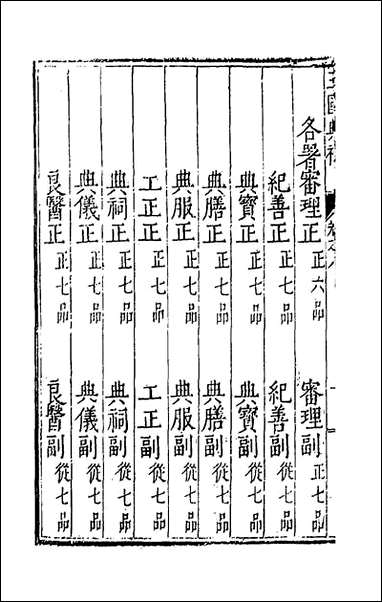 王國典禮
各署審理正正六品 審理副正七品
紀善正正七品 紀善副從七品
典寶正正七品 典寶副從七品
典膳正正七品 典膳副從七品
典服正正七品 典服副從七品
工正正正七品 工正副從七品
典祠正正七品 典祠副從七品
典儀正正七品 典儀副從七品
良醫正正七品 良醫副從七品